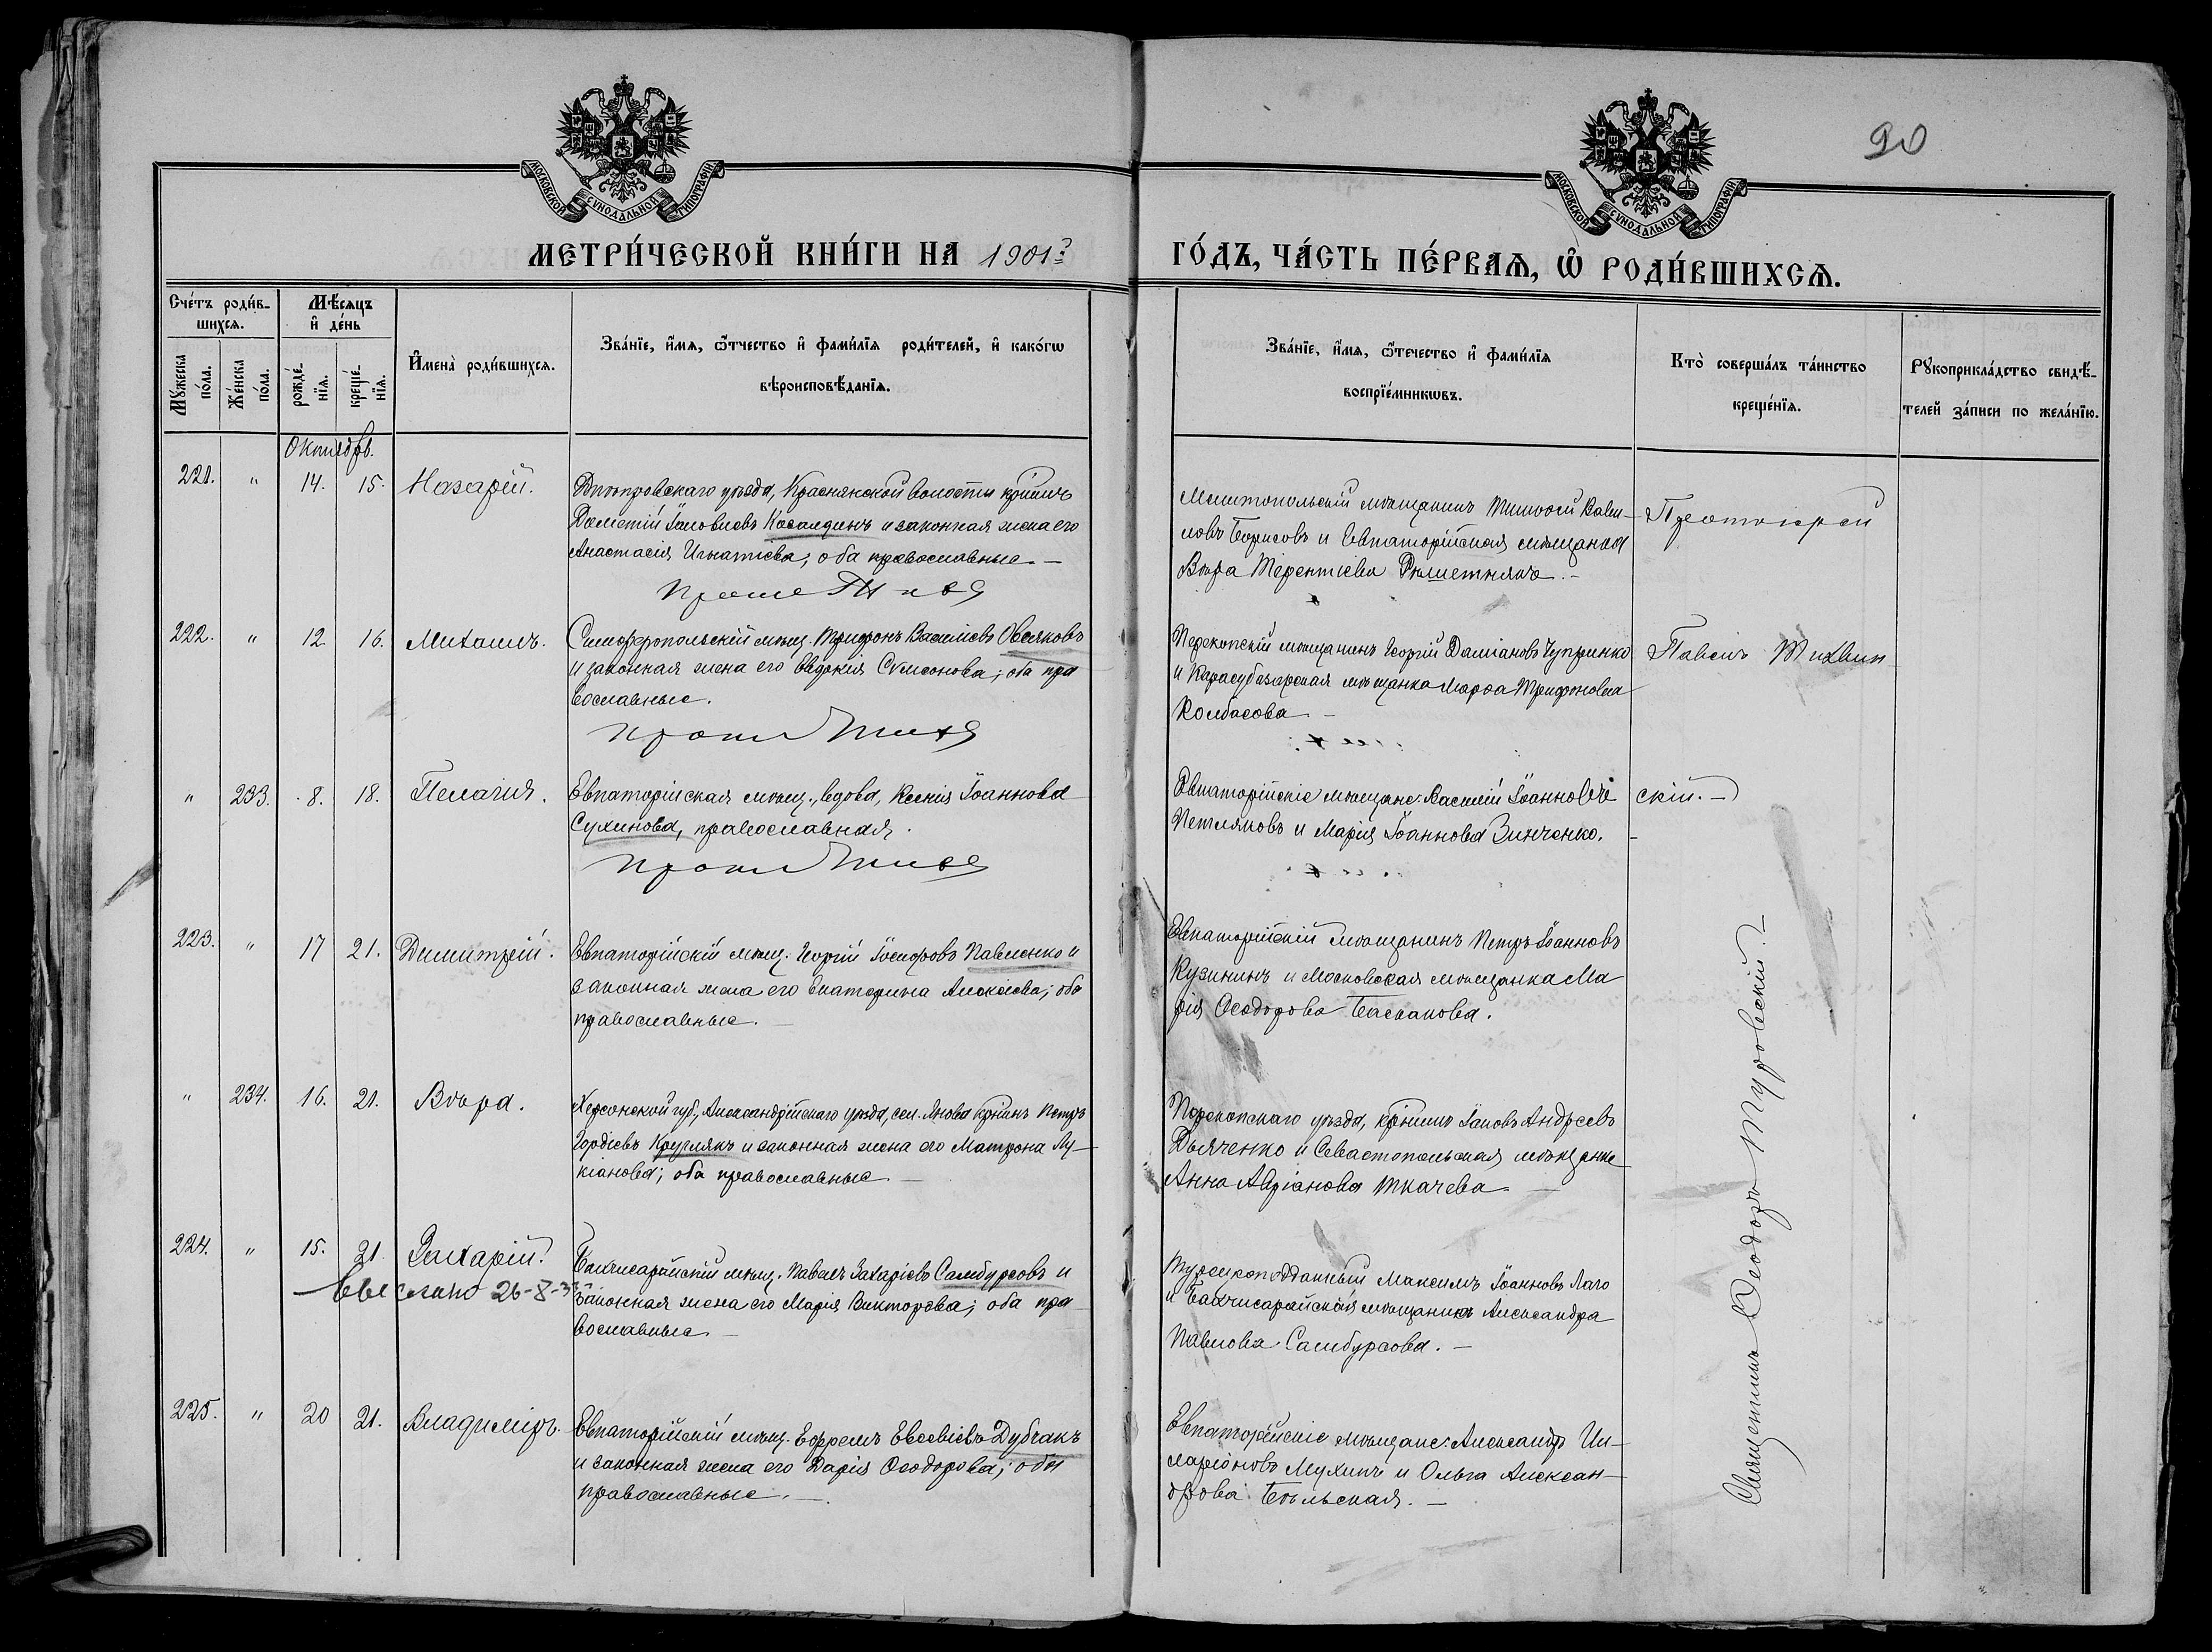 90
МОСКОВСКОЙ СѴНОДАЛЬНОЙ ТИПОГРАФІИ
МОСКОВСКОЙ СѴНОДАЛЬНОЙ ТИПОГРАФІИ
МЕТРИ́ЧЕСКОЙ КНИ́ГИ НА 1901 ГО́ДЪ, ЧА́СТЬ ПЕ́РВАѦ, Ѽ РОДИ́ВШИХСѦ.
Сче́тъ роди́в-
шихсѧ.
Мꙋжеска по́ла.
Же́нска по́ла.
Мѣ́сѧцъ и҆ де́нь
рожде́-нїѧ.
креще́-нїѧ.
И҆мена̀ роди́вшихсѧ.
Зва́нїе, и҆́мѧ, ѻ҆́тчество и҆ фами́лїѧ роди́телей, и҆ како́гѡ
вѣроисповѣ́данїѧ.
Зва́нїе, и҆́мѧ, ѻ҆те́чество и҆ фами́лїѧ
воспрїе́мникѡвъ.
Кто̀ соверша́лъ та́инство
креще́нїѧ.
Рꙋкоприкла́дство свидѣ́-
телей за́писи по жела́нїю.
Октябрь.
221. " 14. 15. Назарій.
Днѣпровскаго уѣзда, Краснянской волости крѣшнъ
Дометій Іаковлевъ Касалдинъ и законная жена его
Анастасія Игнатіева; оба православные. —
Мелитопольскій мѣщанинъ Тимоѳей Вави-
ловъ Борисовъ и Евпаторійская мѣщанка
Вѣра Терентіева Рѣшетнякъ. —
Протоіерей
222. " 12 16. Михаилъ.
Симферопольскій мѣщ. Трифонъ Василіевъ Овсяковъ
и законная жена его Евдокія Сѵмеонова; оба пра
вославные.
Перекопскій мѣщанинъ Георгій Даміановъ Чупринко
и Карасубазарская мѣщанка Марѳа Трифонова
Колбасова —
Павелъ Тихвин-
" 233. 8. 18. Пелагія.
Евпаторійская мѣщ., вдова, Ксенія Іоаннова
Сухинова, православная.
Евпаторійскіе мѣщане: Василій Іоанновъ
Петляковъ и Марія Іоаннова Зинченко.
скій. —
223. " 17 21. Димитрій.
Евпаторійскій мѣщ. Георгій Іосифовъ Павленко и
законная жена его Екатерина Алексіева; оба
православные. —
Евпаторійскій мѣщанинъ Петръ Іоанновъ
Кузининъ и Московская мѣщанка Ма
рія Ѳеодорова Баскакова.
" 234. 16. 21. Вѣра.
Херсонской губ., Александрійскаго уѣзда, сел. Янова крѣнинъ Петръ
Гордіевъ Круглякъ и законная жена его Матрона Лу-
кіанова; оба православные. —
Перекопскаго уѣзда, крѣшнъ Іаковъ Андреевъ
Дьяченко и Севастопольская мѣщанка
Анна Адріанова Ткачева —
224. " 15. 21 Захарій.
выслано 26-8-3
Бахчисарайскій мѣщ. Павелъ Захаріевъ Самбурсовъ и
законная жена его Марія Викторова; оба пра
вославные. —
Турецкоподданный Максимъ Іоанновъ Лаго
и Бахчисарайская мѣщанка Александра
Павлова Самбурсова. —
225. " 20 21. Владиміръ.
Евпаторійскій мѣщ. Ефремъ Евсевіевъ Дубчакъ
и законная жена его Дарія Ѳеодорова; оба
православные. —
Евпаторійскіе мѣщане: Александръ Ил-
ларіоновъ Мухинъ и Ольга Алексан-
дрова Бѣльская. —
Священникъ Ѳеодоръ Туровскій. —